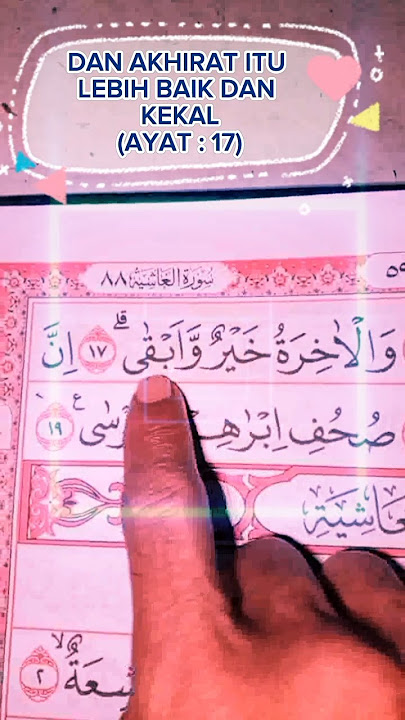 DAN AKHIRAT ITU
LEBIH BAIK DAN
KEKAL
(AYAT : 17)
سُورَةُ الْغَاشِيَةِ ٨٨
وَالْاٰخِرَةُ خَيْرٌ وَّاَبْقٰىۗ ١٧ اِنَّ
صُحُفِ ١٩